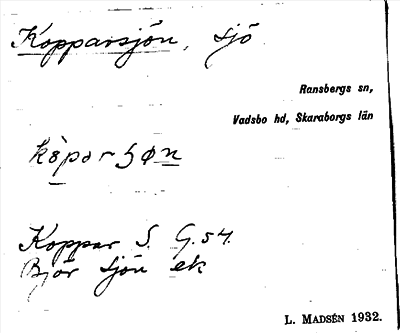 Kopparsjön, sjö
Ransbergs sn,
Vadsbo hd, Skaraborgs län
Koppar S. G.54.
Björ sjön ek
L. MADSÉN 1932.